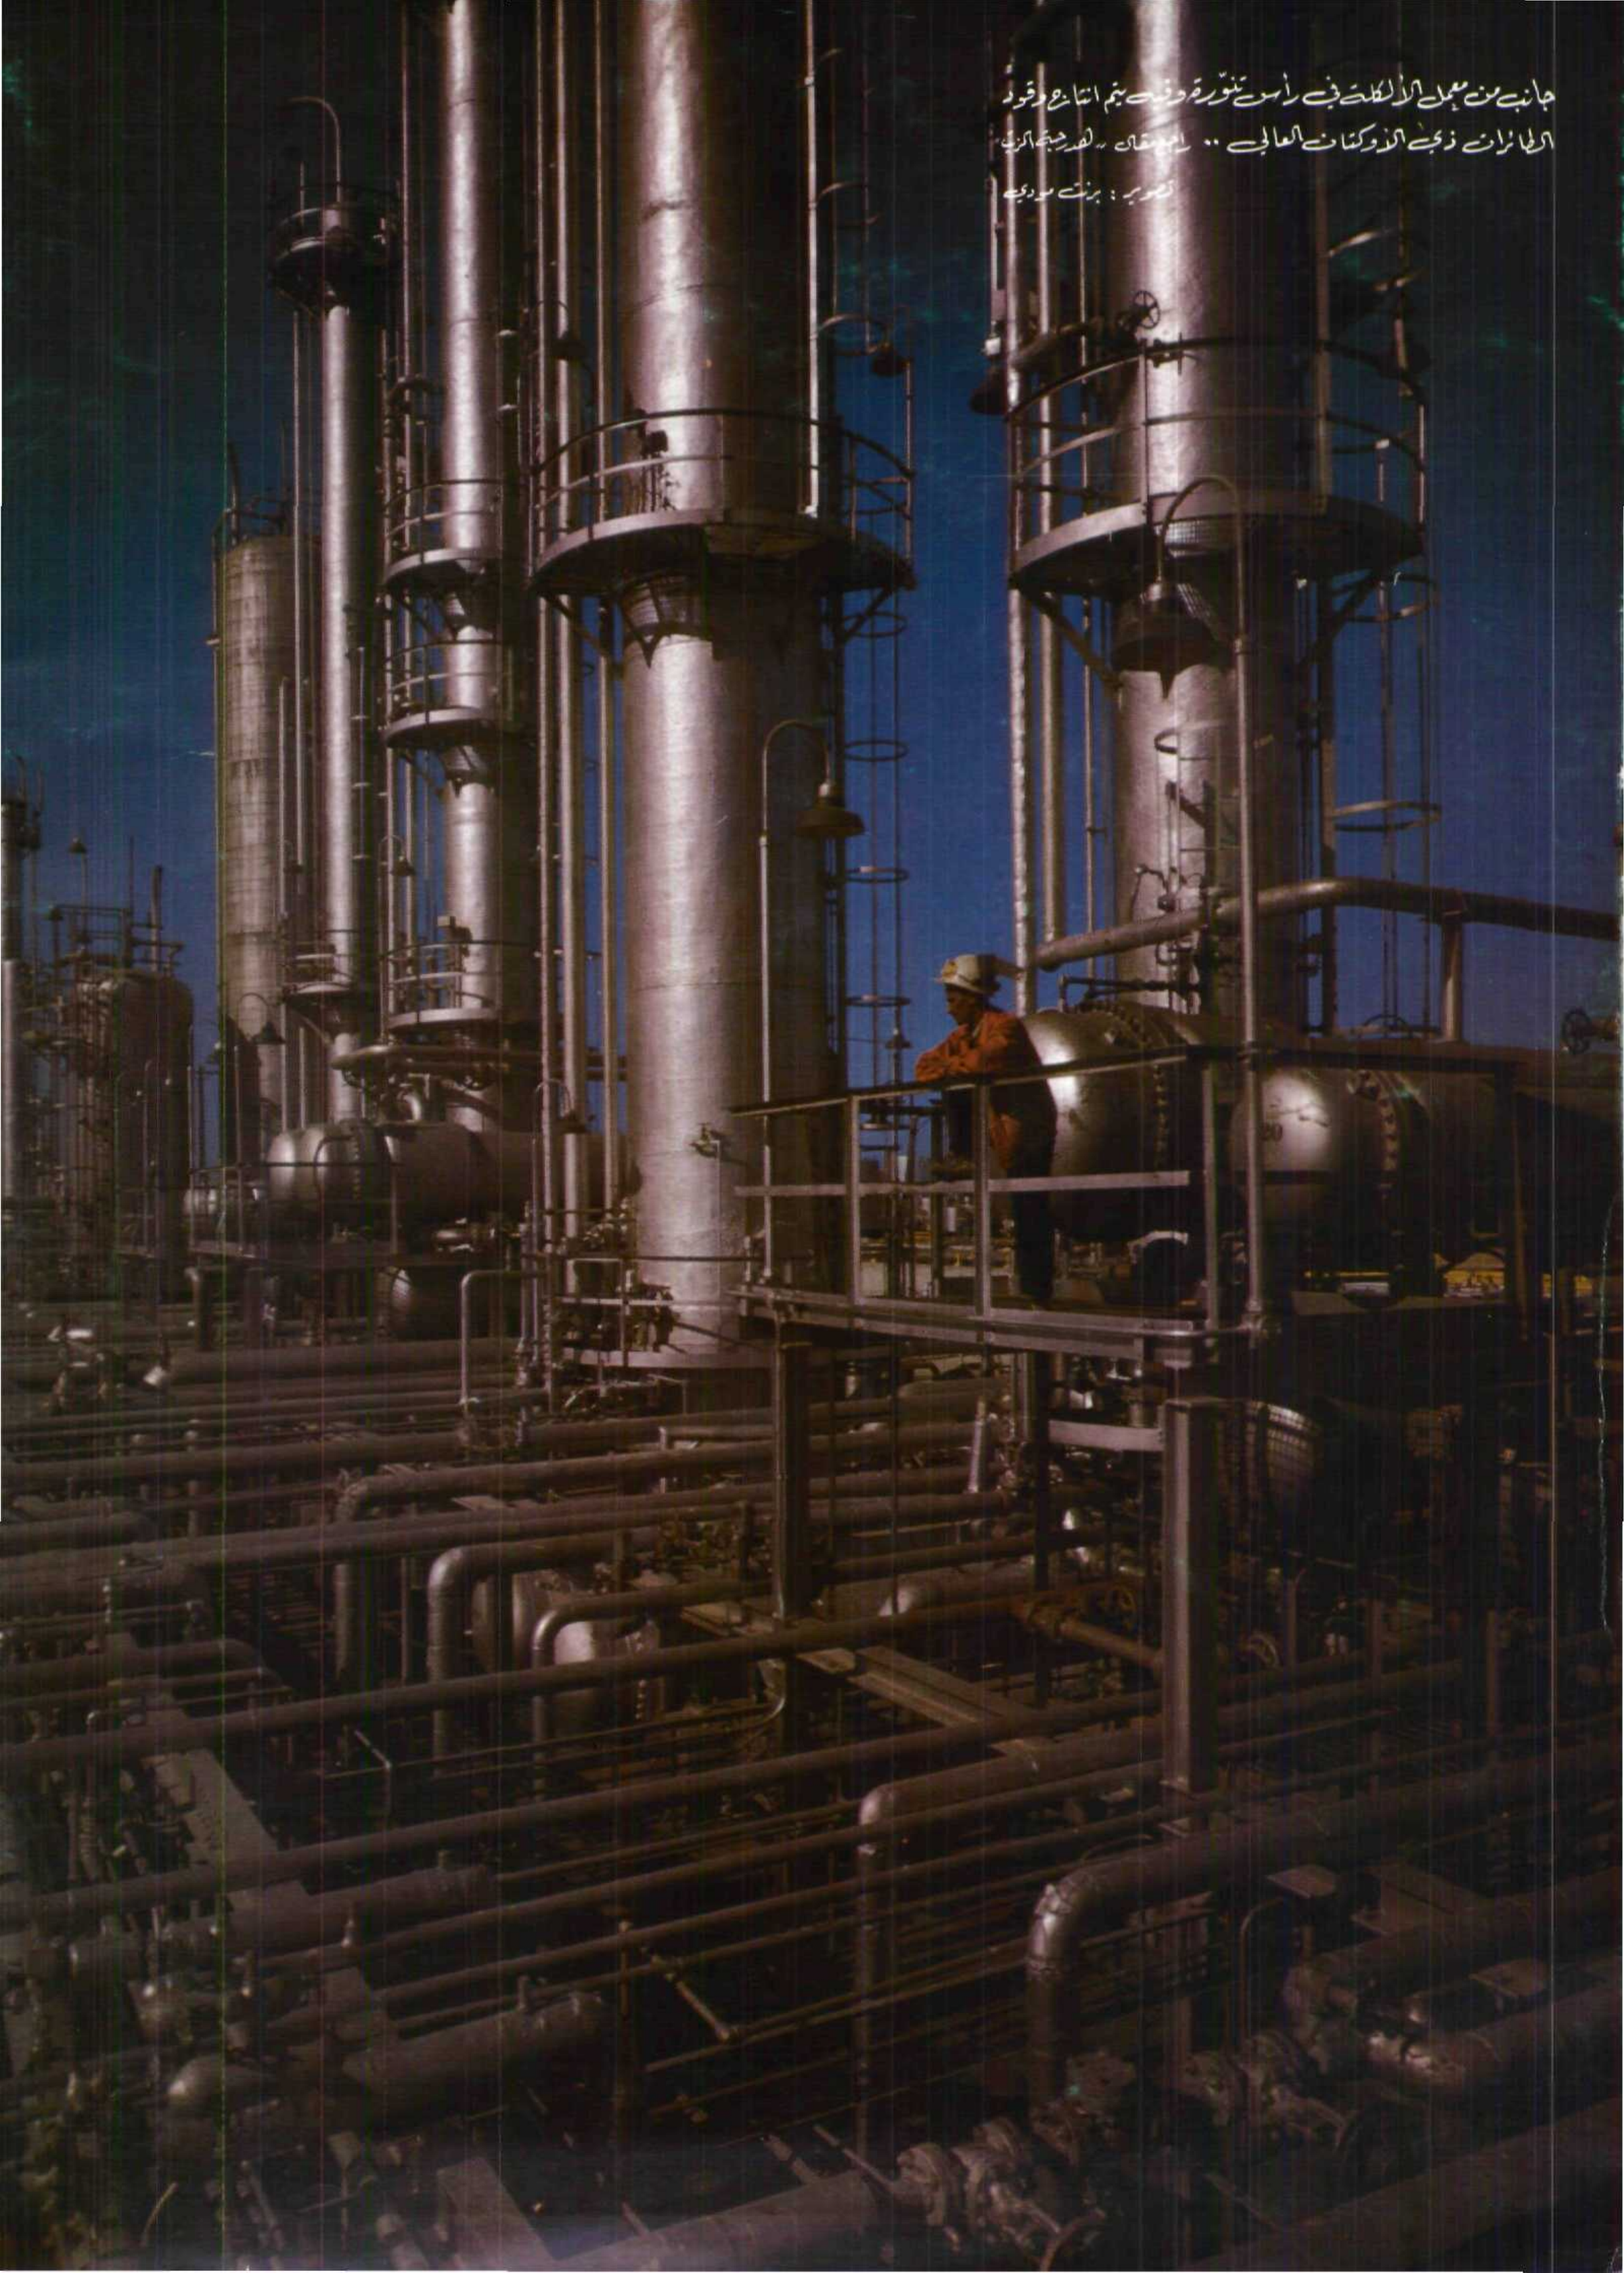 جانب من معمل الألكلة في رأس تنّورة وفيه يتم انتاج وقود
الطائرات ذي الأوكتان العالي .. راجع مقال " هدرجة الزيت "
تصوير : برنت مودي
20